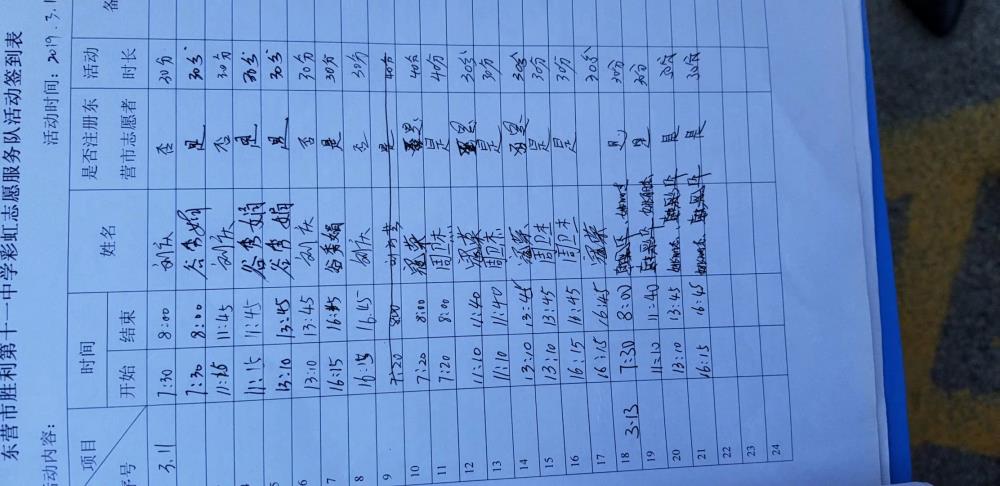 东营市胜利第十一中学彩虹志愿服务队活动签到表
活动内容: 活动时间: 2019.3.1
项目 时间 姓名 是否注册东营市志愿者 活动时长 备
序号 开始 结束
3.11 7:30 8:00 刘庆 否 30分
7:30 8:00 谷秀娟 是 30分
11:15 11:45 刘庆 否 30分
11:15 11:45 谷秀娟 是 30分
13:10 13:45 谷秀娟 是 30分
6 13:10 13:45 刘庆 否 30分
7 16:15 16:45 谷秀娟 是 30分
8 16:15 16:45 刘庆 否 30分
9 7:20 8:00 是 40分
10 7:20 8:00 是 40分
11 7:20 8:00 周卫东 是 40分
12 11:10 11:40 是 30分
13 11:10 11:40 周卫东 是 30分
14 13:10 13:45 是 30分
15 13:10 13:45 周卫东 是 30分
16 16:15 16:45 周卫东 是 30分
17 16:15 16:45 30分
18 3.13 7:30 8:00 是 30分
19 11:10 11:40 是 30分
20 13:10 13:45 是 30分
21 16:15 16:45 是 30分
22
23
24